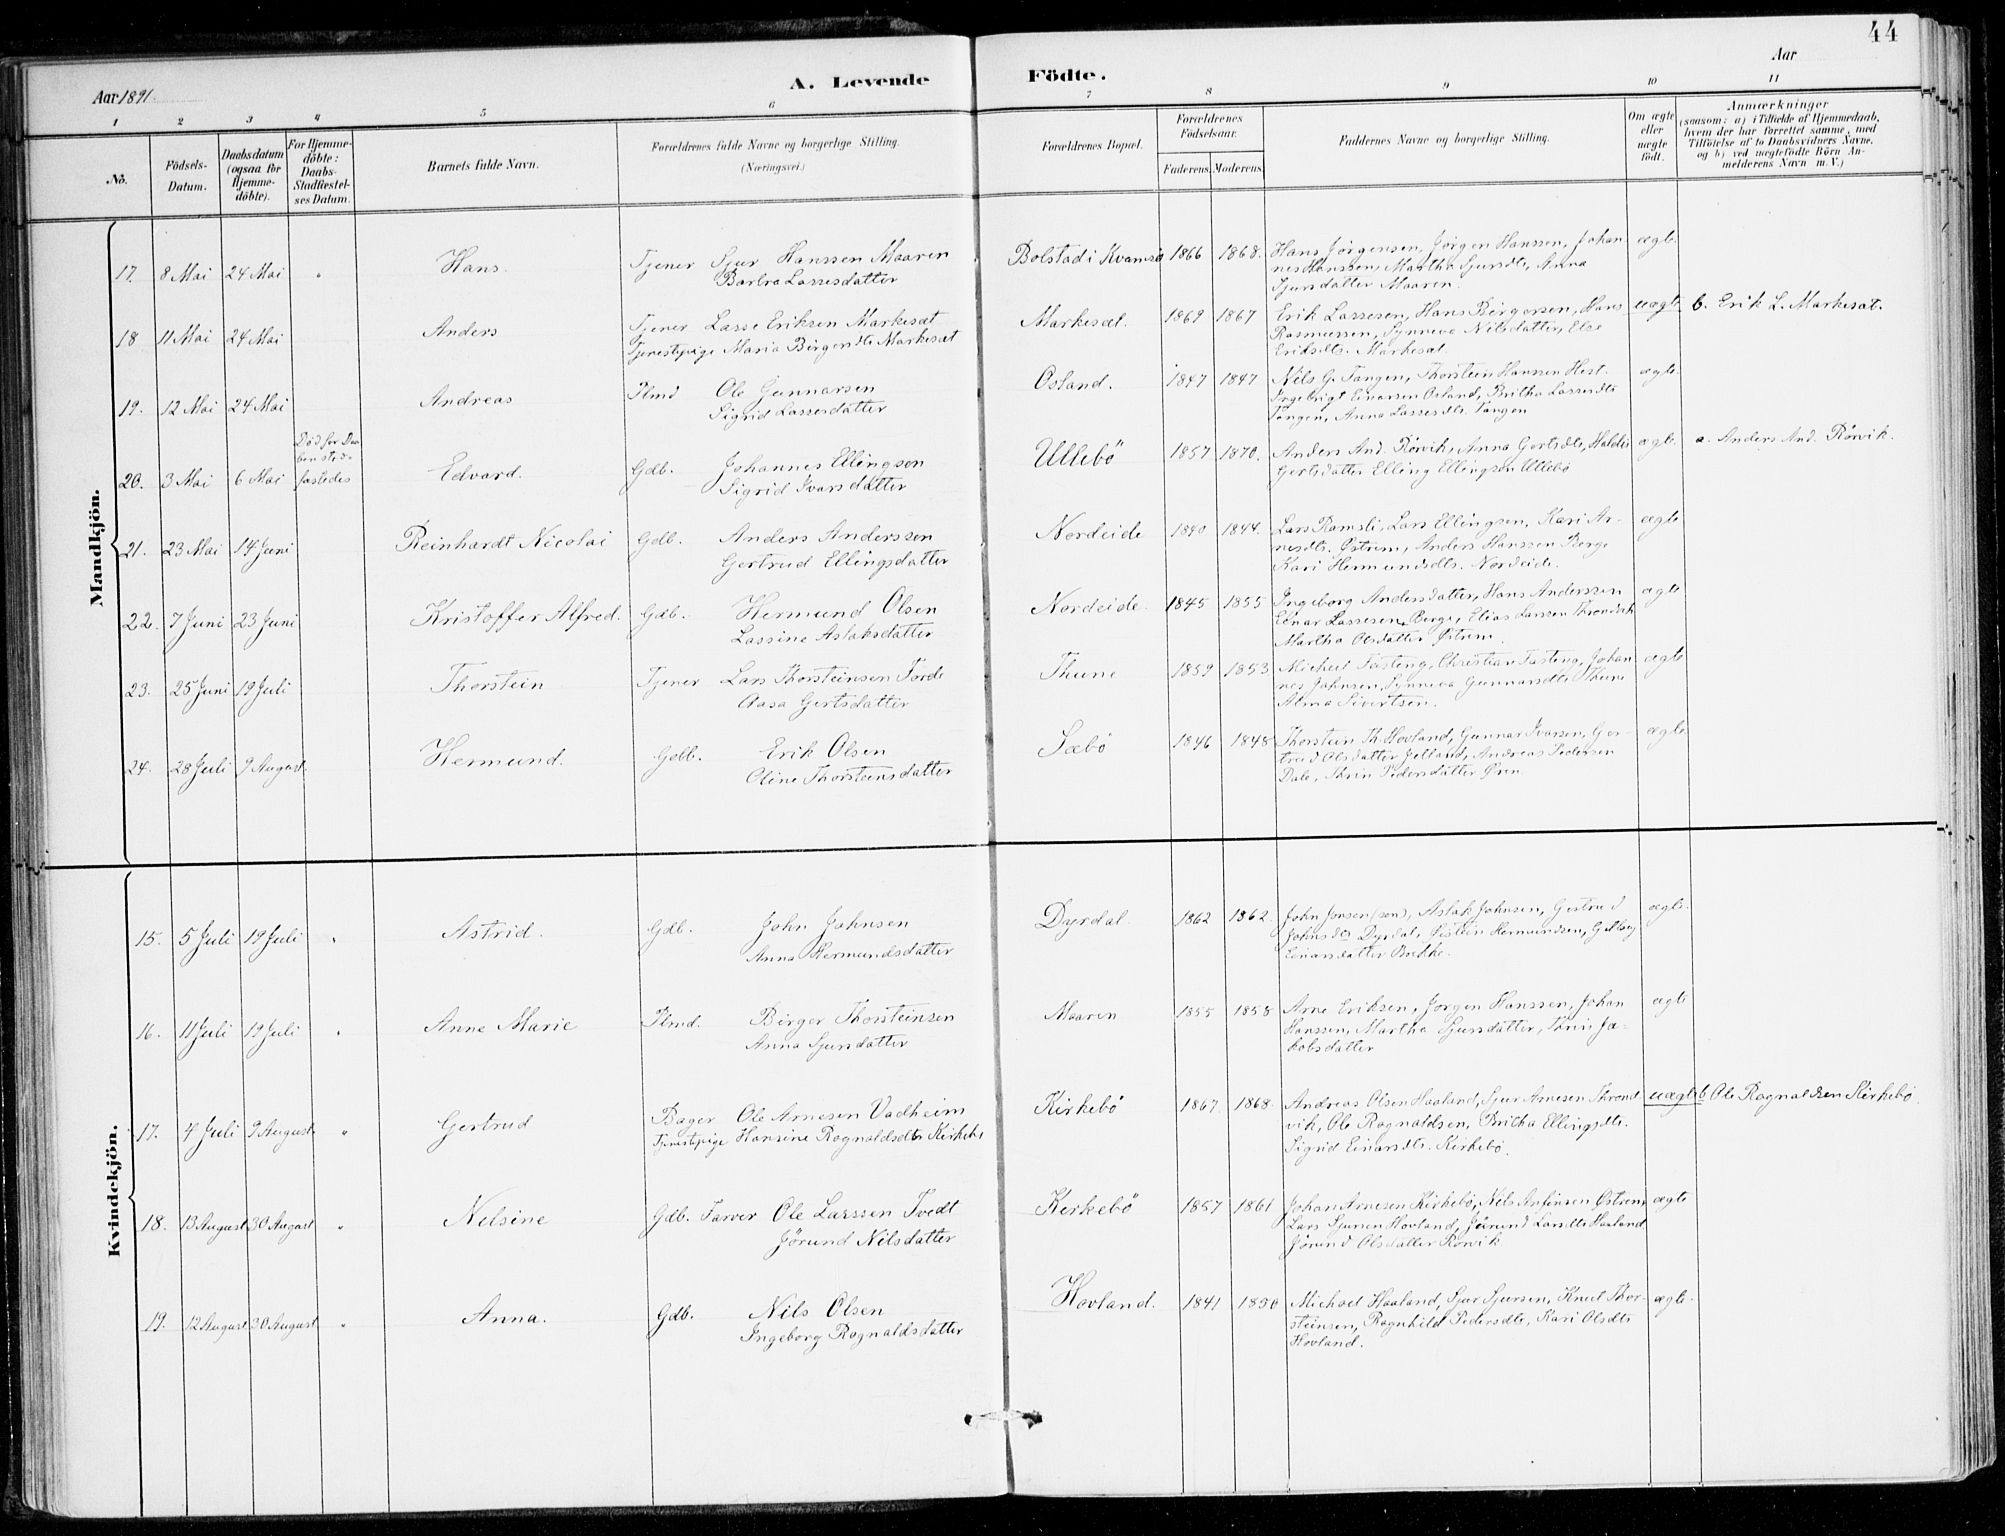 44
Aar 1891.
A. Levende Födte.
Aar
1 2 3 4 5 6 7 8 9 10 11
No.
Födsels-Datum.
Daabsdatum (ogsaa for Hjemme-döbte).
For Hjemme-döbte: Daabs-Stadfæstel-ses Datum.
Barnets fulde Navn.
Forældrenes fulde Navne og borgerlige Stilling. (Næringsvei.)
Forældrenes Bopæl.
Forældrenes Födselsaar.
Faderens. Moderens.
Faddernes Navne og borgerlige Stilling.
Om ægte eller uægte födt.
Anmærkninger
(saasom: a) i Tilfælde af Hjemmedaab,
hvem der har forrettet samme, med
Tilföielse af to Daabsvidners Navne,
og b) ved uægtefödte Börn An-
melderens Navn m. V.)
Mandkjön.
17. 8 Mai 24 Mai " Hans. Tjener Sjur Hanssen Maaren
Barbra Lassesdatter
Bolstad i Kvamsø 1866 1868. Hans Jørgensen, Jørgen Hanssen, Johan-
nes Hanssen, Martha Sjursdtr, Anna
Sjursdatter Maaren.
ægte.
18 11 Mai 24 Mai Anders Tjener Lasse Eriksen Markesæt
Tjenestepige Maria Birgersdtr Markesæt
Markesæt. 1869 1867 Erik Lassesen, Hans Birgersen, Hans
Rasmussen, Synneva Nilsdatter, Else
Eriksdtr. Markesæt.
uægte. b. Erik L. Markesæt.
19. 12 Mai 24 Mai Andreas Plmd Ole Gunnarsen
Sigrid Lassesdatter
Osland. 1847 1847 Nils G. Tangen, Thorstein Hanssen Hest.
Ingebrigt Einarsen Osland, Britha Lassesdtr
Tangen, Anna Lassesdtr. Tangen
ægte
20. 3 Mai 6 Mai Død før Daa-
ben stad-
fæstedes
Edvard. Gdb. Johannes Ellingsen
Sigrid Ivarsdatter
Ullebø 1857 1870. Anders And. Rørvik, Anna Gertsdtr, Haldis
Gertsdatter Elling Ellingsen Ullebø
ægte. a. Anders And. Rørvik.
21. 23 Mai 14 Juni Reinhardt Nicolai Gdb. Anders Anderssen
Gertrud Ellingsdatter
Nordeide 1840 1844. Lars Ramsli, Lars Ellingsen, Kari Ar-
nesdtr. Østrem, Anders Hanssen Berge
Kari Hermundsdtr. Nordeide.
ægte
22. 7 Juni 23 Juni Kristoffer Alfred. Gdb. Hermund Olsen
Lassine Aslaksdatter
Nordeide. 1845 1855 Ingeborg Andersdatter, Hans Anderssen
Einar Lassesen, Berge, Elias Larsen Throndvik
Martha Olsdatter Østrem.
ægte
23. 25 Juni 19 Juli Thorstein Tjener Lars Thorsteinsen Førde
Aasa Gertsdatter
Thune 1859 1853 Michael Fasting, Christian Fasting, Johan-
nes Johnsen, Synneva Gunnarsdtr Thune
Alma Sivertsen.
ægte
24. 28 Juli 9 August. Hermund. Gdb. Erik Olsen
Oline Thorsteinsdatter
Sæbø 1846 1848 Thorstein Th. Hovland, Gunnar Ivarsen, Ger-
trud Olsdatter Jelland, Andreas Pedersen
Dale, Thrin Pedersdatter Øren.
ægte
Kvindekjön.
15. 5 Juli 19 Juli " Astrid. Gdb. John Johnsen
Anna Hermundsdatter
Dyrdal. 1862 1862. John Jonsen (sen), Aslak Johnsen, Gertrud
Johnsdtr Dyrdal, Østein Hermundsen, Gutlaug
Einarsdatter Brekke.
ægte.
16. 11 Juli 19 Juli " Anne Marie Plmd. Birger Thorsteinsen
Anna Sjursdatter
Maaren 1855 1858 Arne Eriksen, Jørgen Hanssen, Johan
Hanssen, Martha Sjursdatter, Thrin Ja-
kobsdatter
ægte
17. 4 Juli 9 August. " Gertrud Bager Ole Arnesen Vadheim
Tjenestepige Hansine Ragnaldsdtr Kirkebø
Kirkebø 1867. 1868. Andreas Olsen Haaland, Sjur Arnesen Thrond-
vik, Ole Ragnaldsen, Britha Ellingsdtr.
Sigrid Einarsdtr. Kirkebø.
uægte b Ole Ragnaldsen Kirkebø.
18. 13 August 30 August " Nelsine Gdb. Farver Ole Larssen Tvedt
Jørund Nilsdatter
Kirkebø 1857 1861 Johan Arnesen Kirkebø, Nils Anfinsen Østrem,
Lars Sjursen Hovland, Jørund Larsdtr Hovland
Jørund Olsdatter Rørvik
ægte
19. 12 August 30 August " Anna. Gdb. Nils Olsen
Ingeborg Ragnaldsdatter
Hovland. 1841 1850 Michael Haaland, Sjur Sjursen, Knut Thor-
steinsen, Ragnhild Pedersdtr, Kari Olsdtr
Hovland.
ægte.